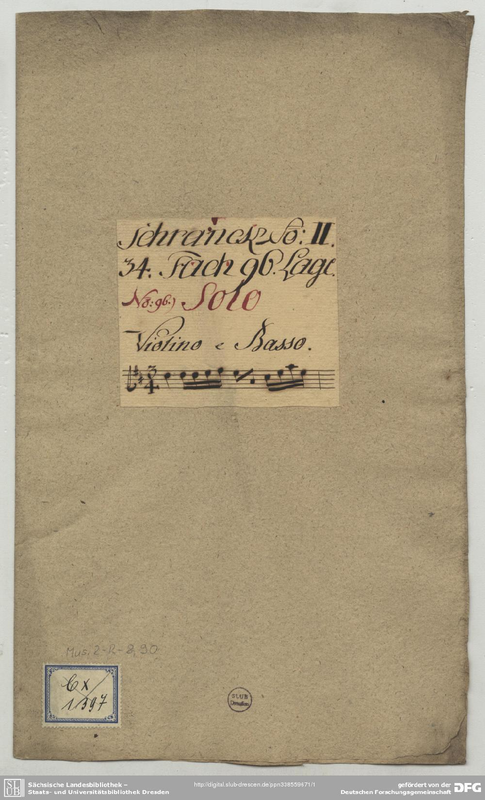 Schranck No: II.
34. Fach 96. Lage.
No: 96.) Solo
Violino e Basso.
3/4
Mus. 2-R-8,90
Cx
1397
SLUB
Dresden
Sächsische Landesbibliothek –
Staats- und Universitätsbibliothek Dresden
http://digital.slub-dresden.de/ppn338559871/1
gefördert von der
Deutschen Forschungsgemeinschaft
DFG